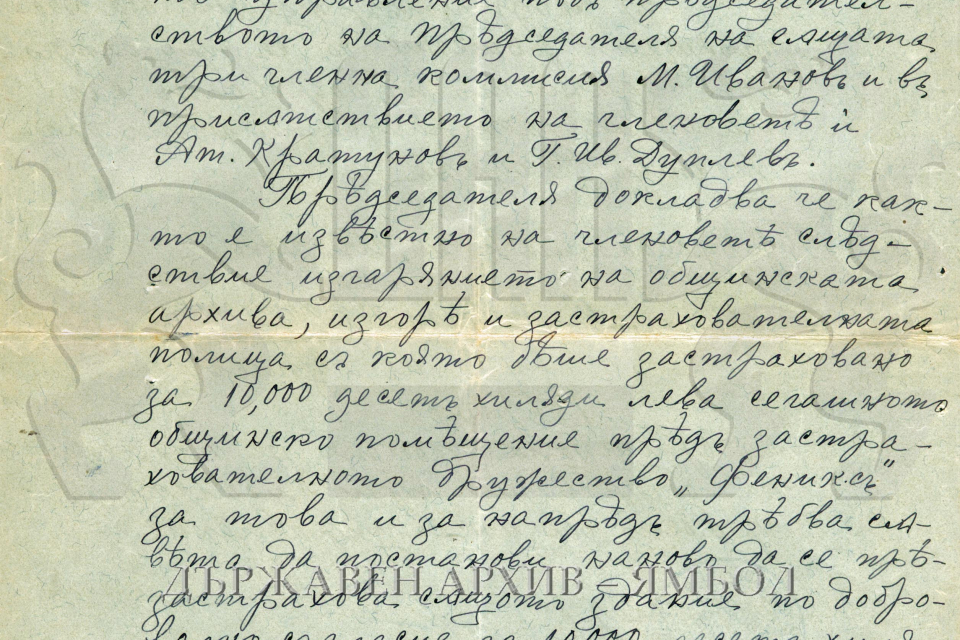 управление подъ прѣдседател-
ството на прѣдседателя на сѫщата
три членна коммисия М. Ивановъ и въ
присѫтствието на членоветѣ ѝ
Ат. Кратуновъ и Г. Ив. Дуплевъ.
Прѣдседателя докладва че как-
то е извѣстно на членоветѣ слѣд-
ствие изгарянието на общинската
архива, изгорѣ и застрахователната
полица съ която бѣше застраховано
за 10,000 десетъ хиляди лева сегашното
общинско помѣщение прѣдъ застра-
хователното дружество „Фениксъ"
за това и за напрѣдъ трѣбва съ-
вѣта да постанови наново да се прѣ-
ДЪРЖАВЕН АРХИВ ЯМБОЛ
застрахова сѫщото здание по добро-